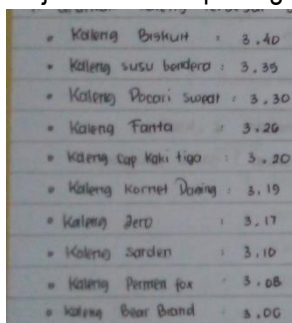 • Kaleng Biskuit : 3.40
• Kaleng susu bendera : 3.35
• Kaleng Pocari sweat : 3.30
• Kaleng Fanta : 3.26
• Kaleng Cap Kaki tiga : 3.20
• Kaleng Kornet Daging : 3.19
• Kaleng Zero : 3.17
• Kaleng Sarden : 3.10
• Kaleng Permen fox : 3.08
• Kaleng Bear Brand : 3.06